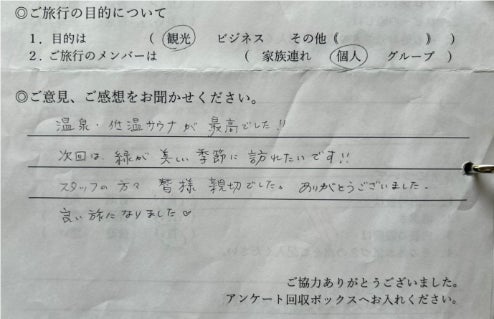 ◎ご旅行の目的について
1．目的は （ 観光 ビジネス その他（ ） ）
2．ご旅行のメンバーは （ 家族連れ 個人 グループ ）
◎ご意見、ご感想をお聞かせください。
温泉・低温サウナが 最高でした!!
次回は 緑が 美しい 季節に 訪れたいです!!
スタッフの方々 皆様 親切でした。 ありがとうございました。
良い旅になりました♡
ご協力ありがとうございました。
アンケート回収ボックスへお入れください。